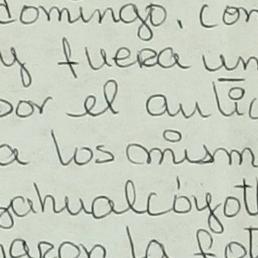 domingo. con
y fuera un
por el aulic
a los mism
zahualcóyotl
maron la fot